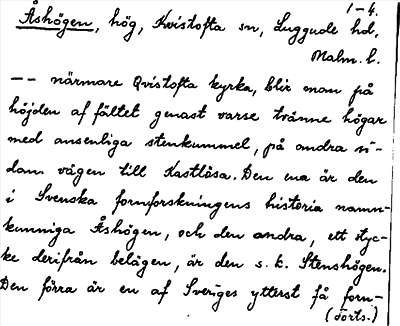 1-4.
Åshögen, hög, Kvistofta sn, Luggude hd,
Malm. l.
-- närmare Qvistofta kyrka, blir man på
höjden af fältet genast varse tvänne högar
med ansenliga stenkummel, på andra si-
dan vägen till Kastlösa. Den ena är den
i Svenska fornforskningens historia namn-
kunniga Åshögen, och den andra, ett styc-
ke derifrån belägen, är den s. k. Stenshögen.
Den förra är en af Sveriges ytterst få forn-
(forts.)